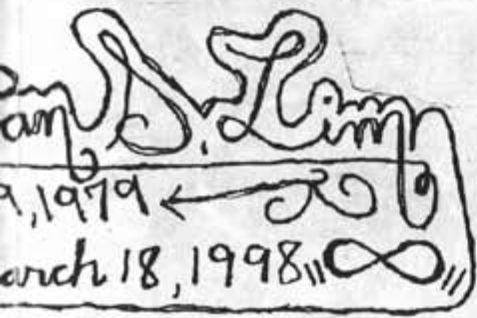 an D. Lim
9, 1979
arch 18, 1998